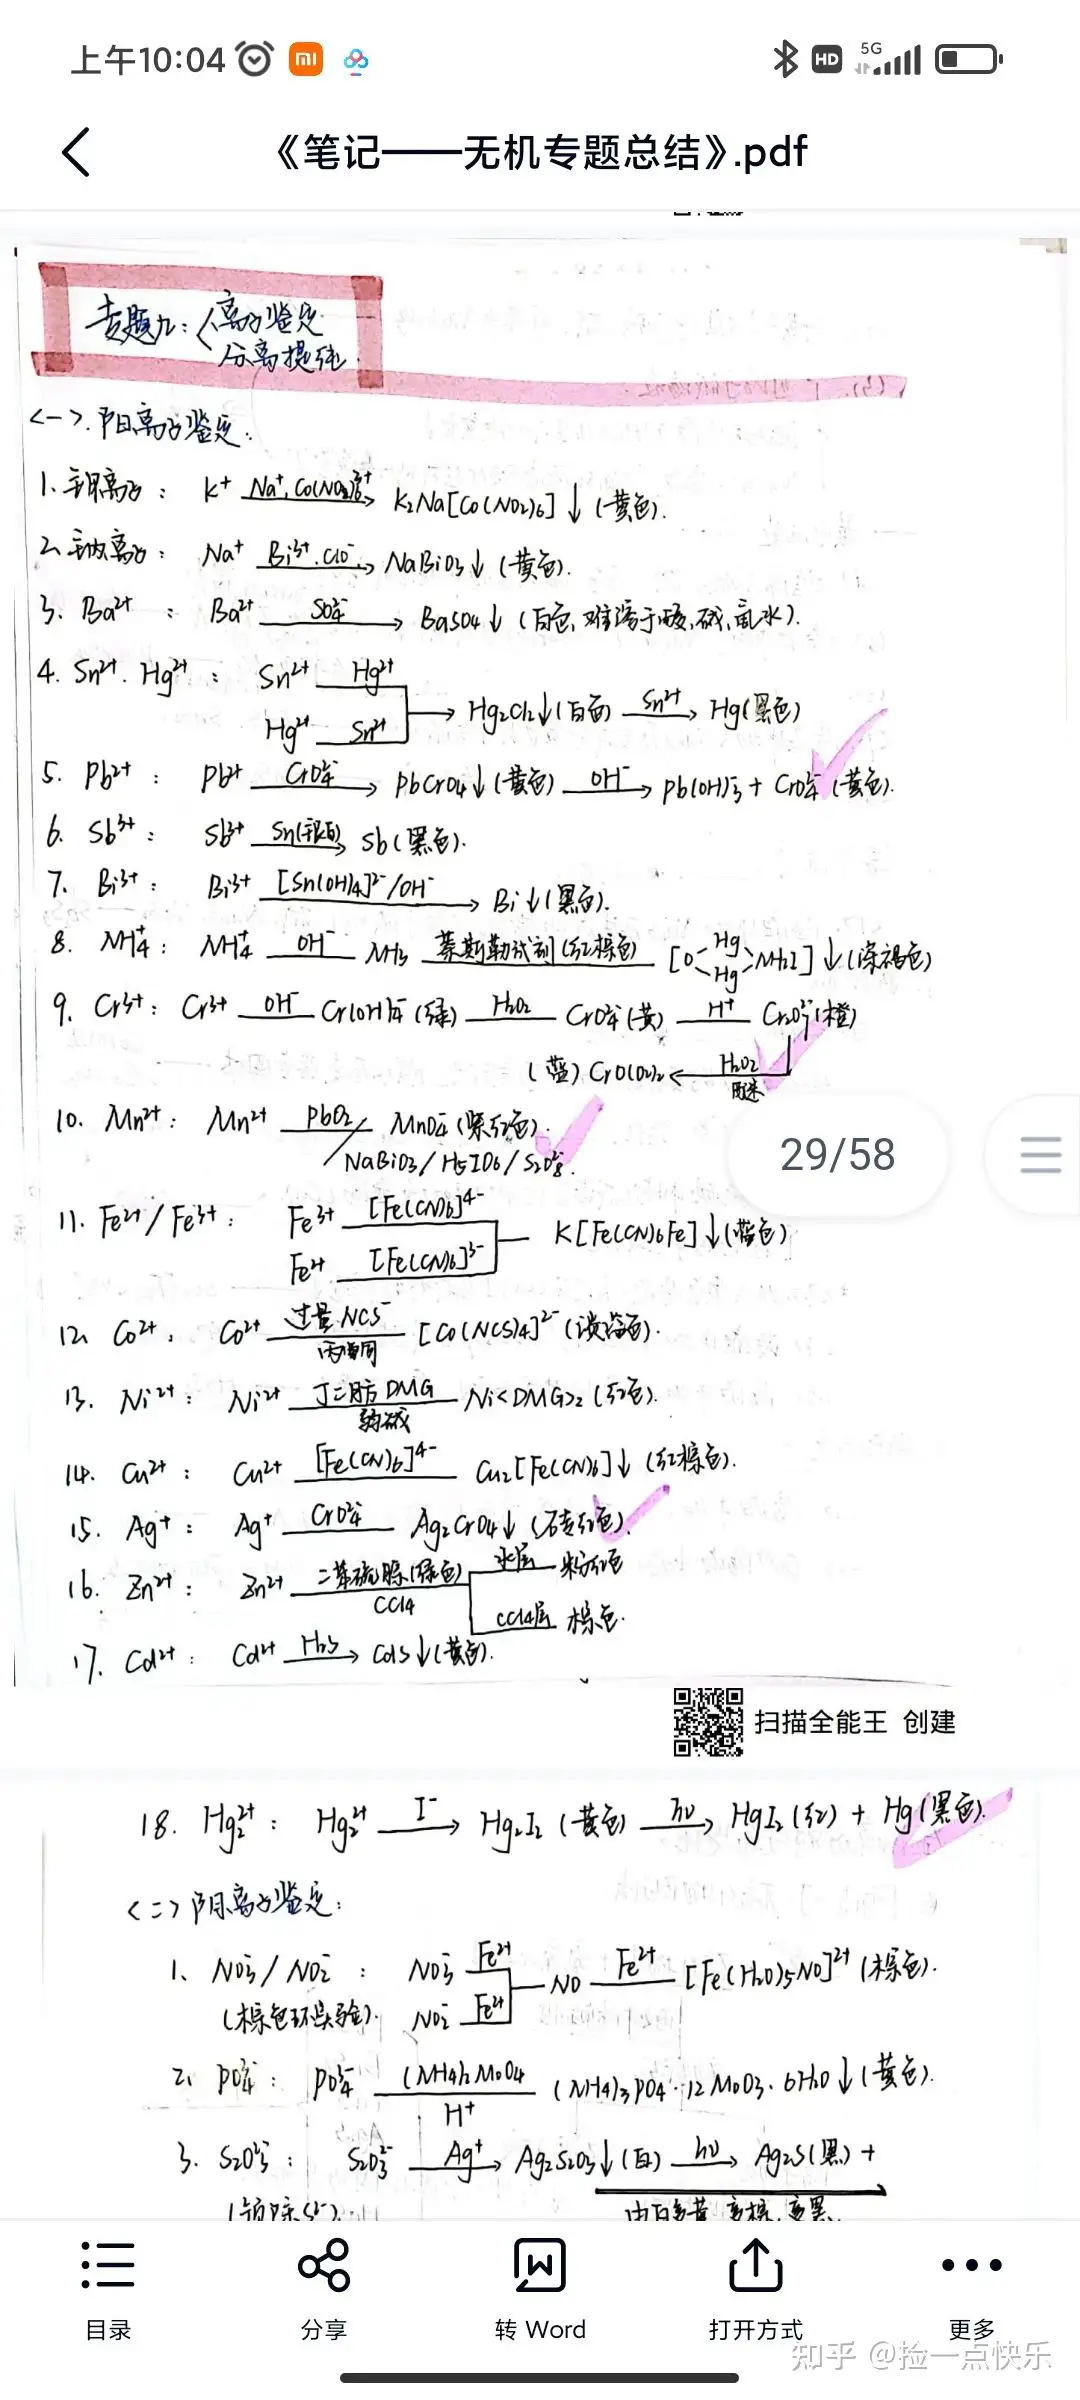 上午10:04
HD 5G
《笔记——无机专题总结》.pdf
专题九：离子鉴定
分离提纯
<一>.阳离子鉴定：
1.钾离子： K⁺ Na⁺,Co(NO₂)₆³⁻ K₂Na[Co(NO₂)₆]↓(黄色).
2.钠离子： Na⁺ Bi³⁺.ClO⁻ NaBiO₃↓(黄色).
3. Ba²⁺ ： Ba²⁺ SO₄²⁻ BaSO₄↓(白色,难溶于酸、碱、氨水).
4. Sn²⁺. Hg²⁺ ： Sn²⁺ Hg²⁺
Hg²⁺ Sn²⁺ → Hg₂Cl₂↓(白色) Sn²⁺→ Hg(黑色)
5. Pb²⁺ ： Pb²⁺ CrO₄²⁻→ PbCrO₄↓(黄色) OH⁻→ Pb(OH)₃⁻ + CrO₄²⁻(黄色).
6. Sb³⁺ ： Sb³⁺ Sn(银白)→ Sb(黑色).
7. Bi³⁺ ： Bi³⁺ [Sn(OH)₄]²⁻/OH⁻→ Bi↓(黑色).
8. NH₄⁺ ： NH₄⁺ OH⁻ NH₃ 萘斯勒试剂(红棕色) [O<Hg Hg>NH₂I]↓(深褐色)
9. Cr³⁺ ： Cr³⁺ OH⁻ Cr(OH)₄⁻(绿) H₂O₂ CrO₄²⁻(黄) H⁺ Cr₂O₇²⁻(橙)
(蓝) CrO(O₂)₂ ← H₂O₂ 醚
10. Mn²⁺ ： Mn²⁺ PbO₂ MnO₄⁻(紫红色).
/NaBiO₃/H₅IO₆/S₂O₈²⁻.
29/58
11. Fe²⁺/Fe³⁺ ： Fe³⁺ [Fe(CN)₆]⁴⁻
Fe²⁺ [Fe(CN)₆]³⁻ K[Fe(CN)₆Fe]↓(蓝色)
12. Co²⁺ ： Co²⁺ 过量NCS⁻ 丙酮 [Co(NCS)₄]²⁻
13. Ni²⁺ ： Ni²⁺ 丁二肟DMG 弱碱 Ni<DMG>₂(红色).
14. Cu²⁺ ： Cu²⁺ [Fe(CN)₆]⁴⁻ Cu₂[Fe(CN)₆]↓(红棕色).
15. Ag⁺ ： Ag⁺ CrO₄²⁻ Ag₂CrO₄↓(砖红色).
16. Zn²⁺ ： Zn²⁺ 二苯硫腙(绿色) CCl₄ 水层 粉红色
CCl₄层 棕色.
17. Cd²⁺ ： Cd²⁺ H₂S→ CdS↓(黄色).
扫描全能王 创建
18. Hg₂²⁺ ： Hg₂²⁺ I⁻→ Hg₂I₂(黄色) hν→ HgI₂(红) + Hg(黑色).
<二>阴离子鉴定：
1、NO₃⁻/NO₂⁻ ： NO₃⁻ Fe²⁺
(棕色环实验). NO₂⁻ Fe²⁺ NO Fe²⁺ [Fe(H₂O)₅NO]²⁺(棕色).
2、PO₄³⁻ ： PO₄³⁻ (NH₄)₂MoO₄ H⁺ (NH₄)₃PO₄·12MoO₃·6H₂O↓(黄色).
3. S₂O₃²⁻ ： S₂O₃²⁻ Ag⁺→ Ag₂S₂O₃↓(白) hν→ Ag₂S(黑) +
由白变黄、变棕、变黑
目录
分享
转 Word
打开方式
更多
知乎 @捡一点快乐